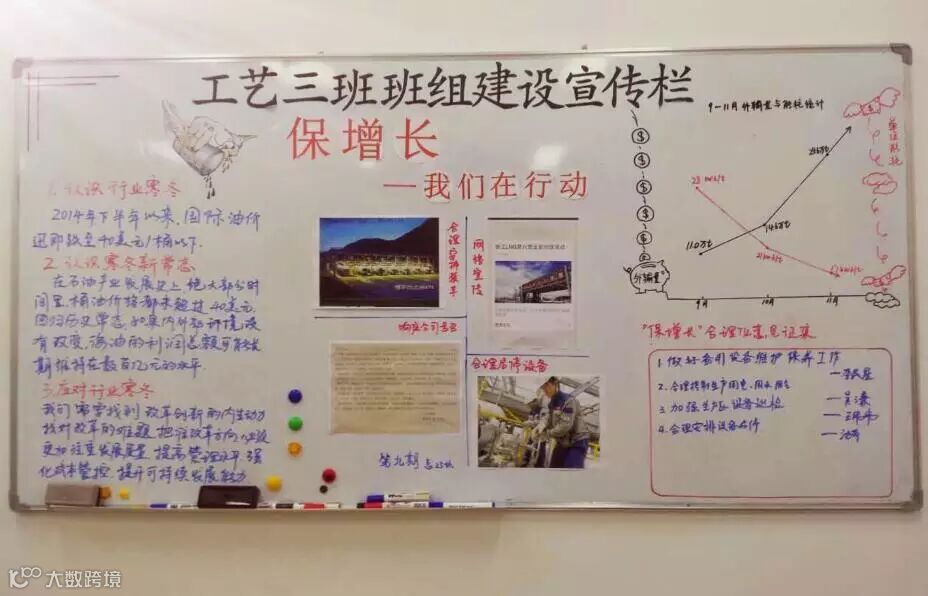 工艺三班班组建设宣传栏
保增长
—我们在行动
1. 认识行业寒冬
2014年下半年以来,国际油价
迅即跌至40美元/桶以下.
2. 认识寒冬新常态
在石油产业发展史上,绝大部分时
间里,桶油价格都未超过40美元,
回归历史常态,如果内外部环境没
有改变,海油的利润总额可能长
期维持在数百亿元的水平.
3. 应对行业寒冬
我们需要找到改革创新的内生动力
找对改革的难题,把准改革方向,
更加注重发展质量,提高管理水平,强
化成本管控,提升可持续发展能力
合理安排装车
网络宣传
响应公司号召
合理启停设备
第九期
9—11月外输量与能耗统计
单位能耗
外输量
110万t
9月
10月
11月
"保增长"合理化意见征集
1. 做好备用设备维护保养工作
2. 合理控制生产用电、用水
3. 加强生产区设备巡检
4. 合理安排设备启停
大数跨境